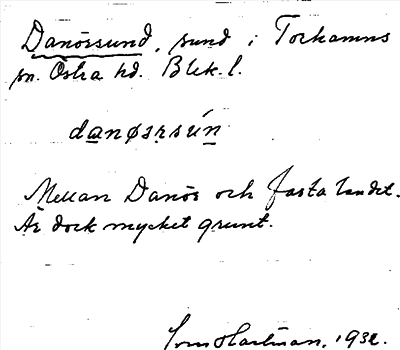 Danörsund, sund i Torhamns
sn. Östra hd. Blek. l.
danøsrsún
Mellan Danör och fasta landet.
Är dock mycket grunt.
Hartman, 1932.